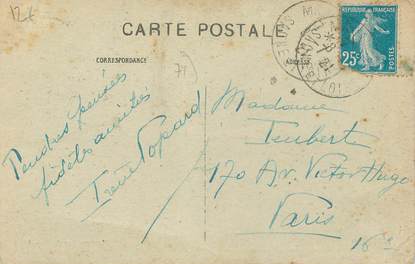 12 €
CARTE POSTALE
CORRESPONDANCE
71
ADRESSE
RÉPUBLIQUE FRANÇAISE
25c
POSTES
Tendres pensées
fidèles amitiés
Irène Popard
Madame
170 Av. Victor Hugo
Paris
16e